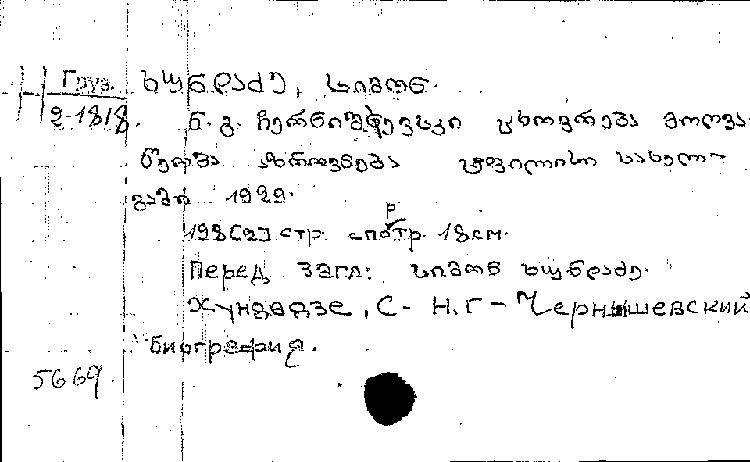 Груз. ხუნდაძე, სიმონ.
2-1818. ნ. გ. ჩერნიშევსკი ცხოვრება მოღვა-
წეობა აზროვნება ტფილისი სახელ-
გამი 1929.
198[2] стр. с портр. 18см.
Перед загл: სიმონ ხუნდაძე.
Хундадзе, С - Н.Г - Чернышевский
биография.
5669.